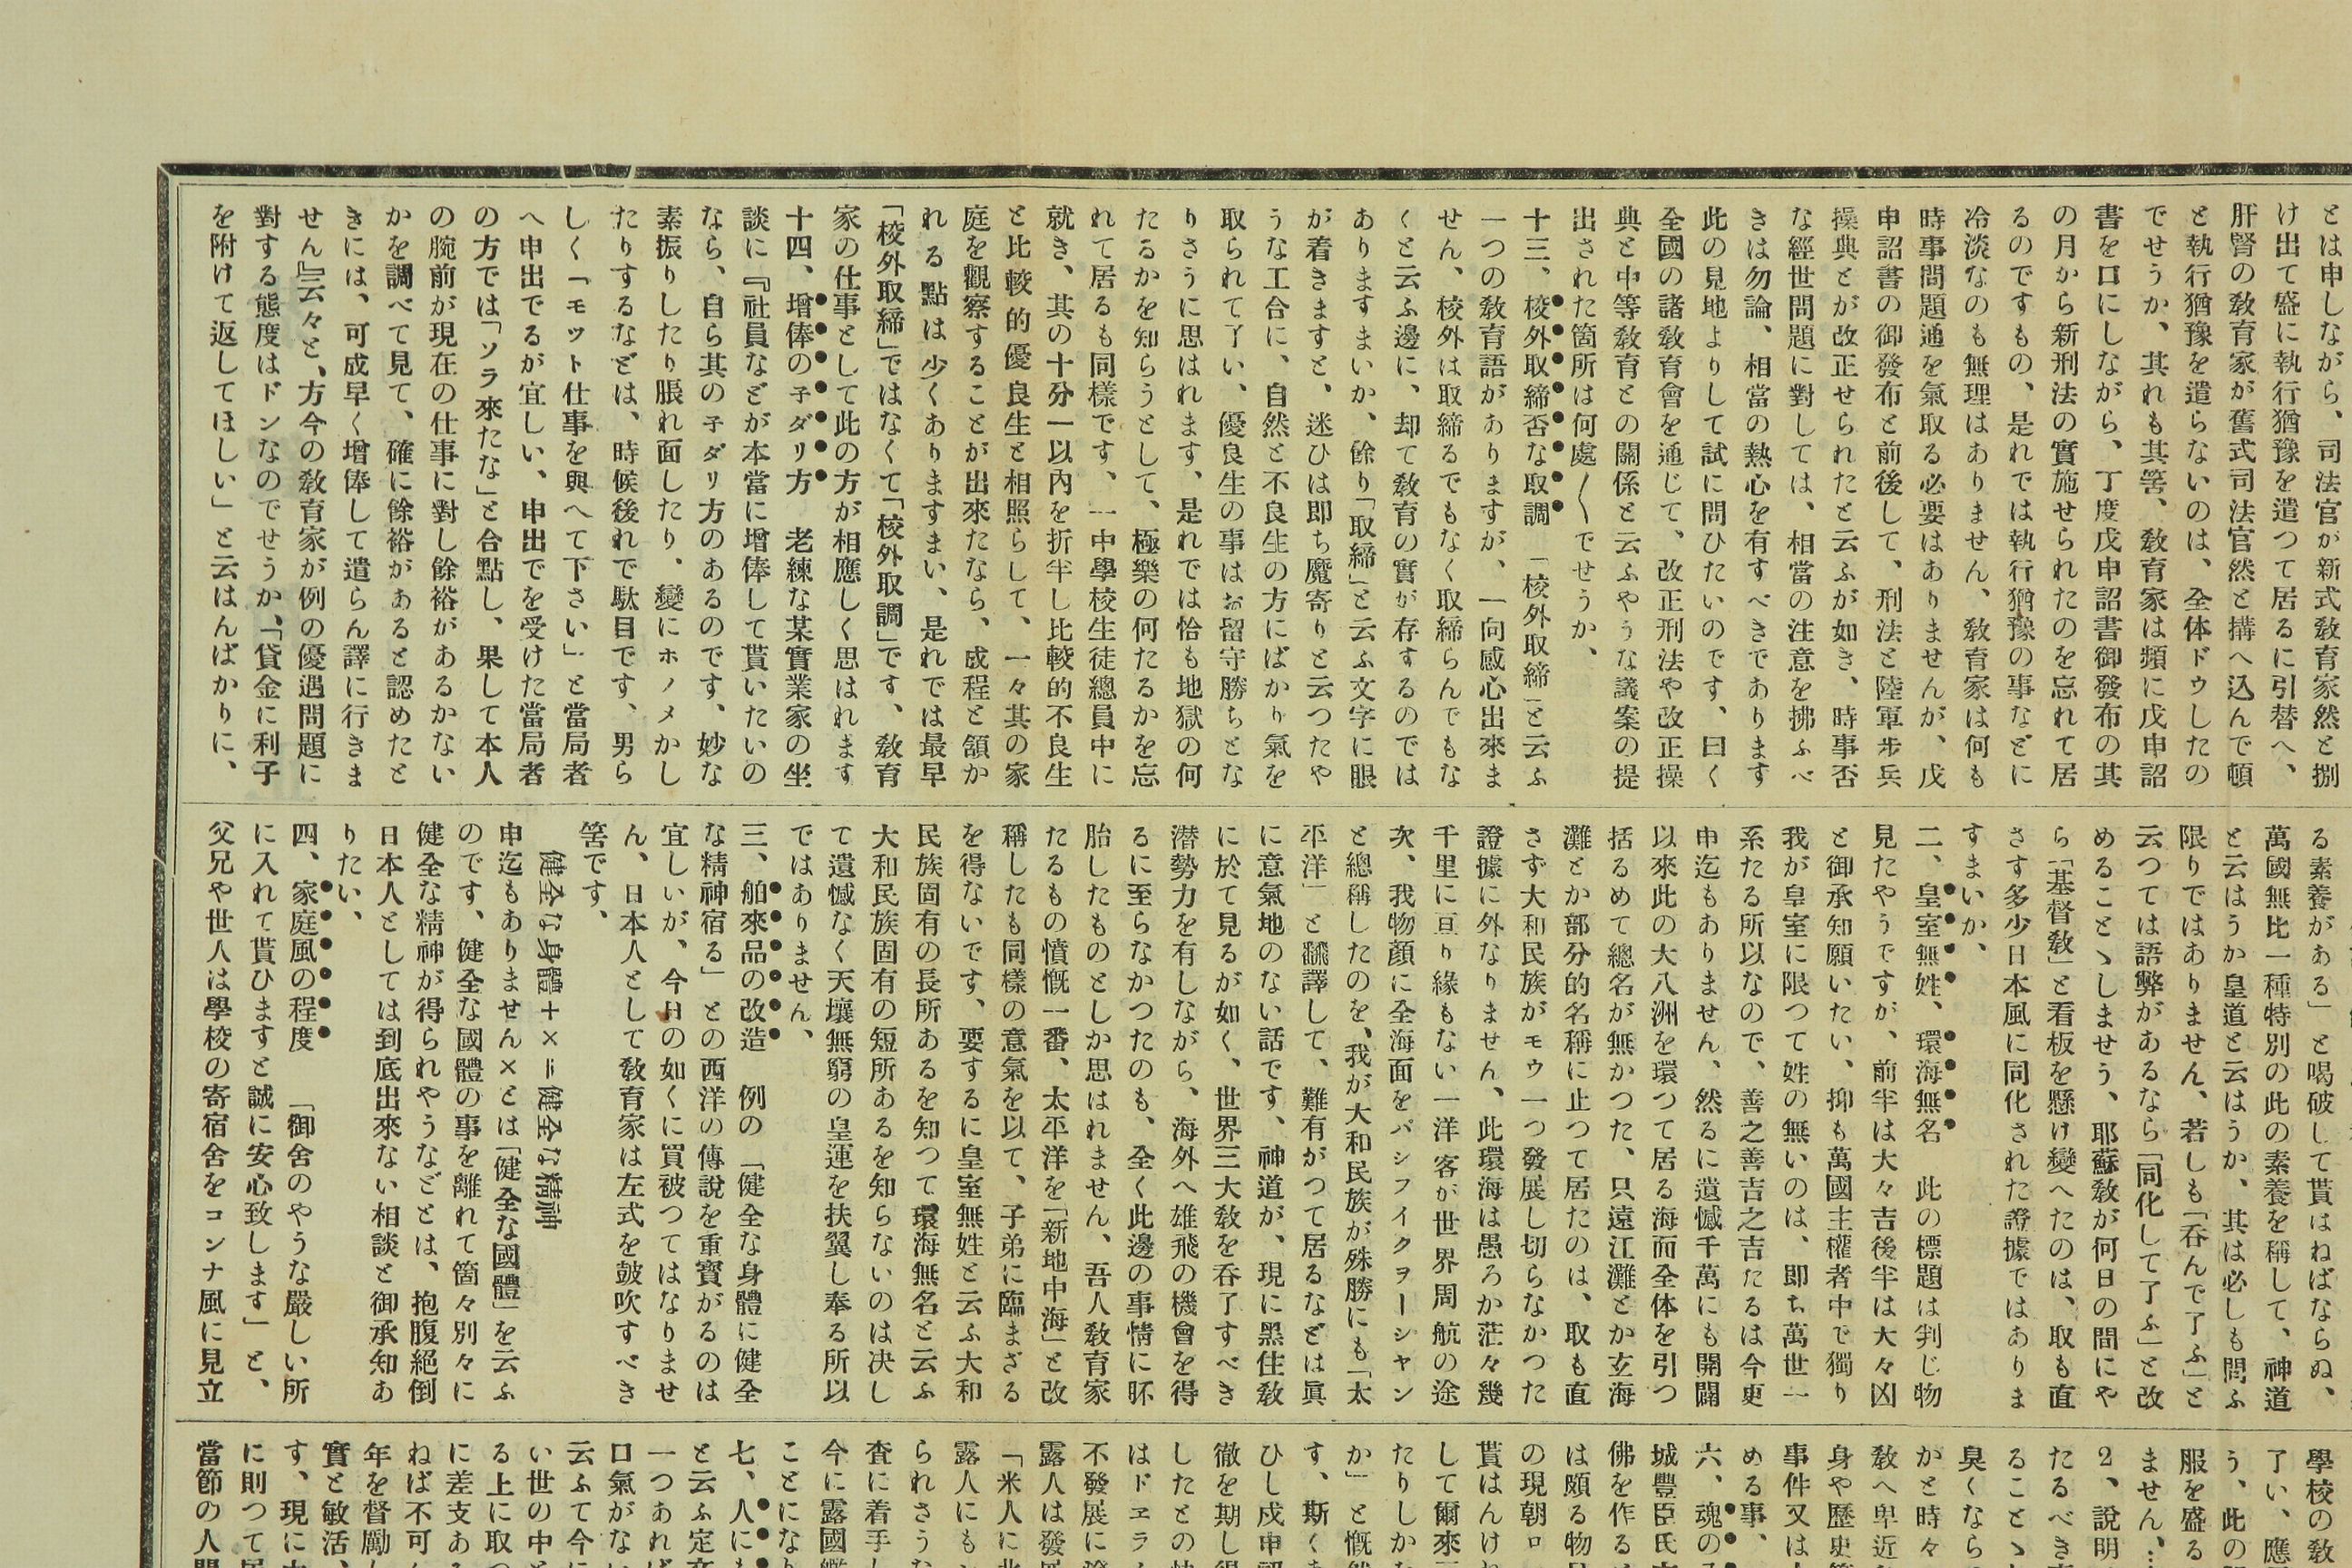 とは申しながら、司法官が新式教育家然と捌
け出て盛に執行猶豫を遣つて居るに引替へ、
肝腎の教育家が舊式司法官然と搆へ込んで頓
と執行猶豫を遣らないのは、全体ドウしたの
でせうか、其れも其筈、教育家は頻に戊申詔
書を口にしながら、丁度戊申詔書御發布の其
の月から新刑法の實施せられたのを忘れて居
るのですもの、是れでは執行猶豫の事などに
冷淡なのも無理はありません、教育家は何も
時事問題通を氣取る必要はありませんが、戊
申詔書の御發布と前後して、刑法と陸軍步兵
操典とが改正せられたと云ふが如き、時事否
な經世問題に對しては、相當の注意を拂ふべ
きは勿論、相當の熱心を有すべきであります
此の見地よりして試に問ひたいのです、曰く
全國の諸教育會を通じて、改正刑法や改正操
典と中等教育との關係と云ふやうな議案の提
出された箇所は何處〱でせうか、
十三、校外取締否な取調 「校外取締」と云ふ
一つの教育語がありますが、一向感心出來ま
せん、校外は取締るでもなく取締らんでもな
くと云ふ邊に、却て教育の實が存するのでは
ありますまいか、餘り「取締」と云ふ文字に眼
が着きますと、迷ひは即ち魔寄りと云つたや
うな工合に、自然と不良生の方にばかり氣を
取られて了い、優良生の事はお留守勝ちとな
りさうに思はれます、是れでは恰も地獄の何
たるかを知らうとして、極樂の何たるかを忘
れて居るも同樣です、一中學校生徒總員中に
就き、其の十分一以內を折半し比較的不良生
と比較的優良生と相照らして、一々其の家
庭を觀察することが出來たなら、成程と頷か
れる點は少くありますまい、是れでは最早
「校外取締」ではなくて「校外取調」です、教育
家の仕事として此の方が相應しく思はれます
十四、增俸の子ダリ方 老練な某實業家の坐
談に『社員などが本當に增俸して貰いたいの
なら、自ら其の子ダリ方のあるのです、妙な
素振りしたり脹れ面したり、變にホノメかし
たりするなどは、時候後れで駄目です、男ら
しく「モット仕事を興へて下さい」と當局者
へ申出でるが宜しい、申出でを受けた當局者
の方では「ソラ來たな」と合點し、果して本人
の腕前が現在の仕事に對し餘裕があるかない
かを調べて見て、確に餘裕があると認めたと
きには、可成早く增俸して遣らん譯に行きま
せん』云々と、方今の教育家が例の優遇問題に
對する態度はドンなのでせうか、「貸金に利子
を附けて返してほしい」と云はんばかりに、
る素養がある」と喝破して貰はねばならぬ、
萬國無比一種特別の此の素養を稱して、神道
と云はうか皇道と云はうか、其は必しも問ふ
限りではありません、若しも「呑んで了ふ」と
云つては語弊があるなら「同化して了ふ」と改
めることゝしませう、耶蘇教が何日の間にや
ら「基督教」と看板を懸け變へたのは、取も直
さず多少日本風に同化された證據ではありま
すまいか、
二、皇室無姓、環海無名 此の標題は判じ物
見たやうですが、前半は大々吉後半は大々凶
と御承知願いたい、抑も萬國主權者中で獨り
我が皇室に限つて姓の無いのは、即ち萬世一
系たる所以なので、善之善吉之吉たるは今更
申迄もありません、然るに遺憾千萬にも開闢
以來此の大八洲を環つて居る海面全体を引つ
括るめて總名が無かつた、只遠江灘とか玄海
灘とか部分的名稱に止つて居たのは、取も直
さず大和民族がモウ一つ發展し切らなかつた
證據に外なりません、此環海は愚ろか茫々幾
千里に亘り緣もない一洋客が世界周航の途
次、我物顏に全海面をパシフイクヲーシヤン
と總稱したのを、我が大和民族が殊勝にも「太
平洋」と飜譯して、難有がつて居るなどは眞
に意氣地のない話です、神道が、現に黑住教
に於て見るが如く、世界三大教を呑了すべき
潜勢力を有しながら、海外へ雄飛の機會を得
るに至らなかつたのも、全く此邊の事情に胚
胎したものとしか思はれません、吾人教育家
たるもの憤慨一番、太平洋を「新地中海」と改
稱したも同樣の意氣を以て、子弟に臨まざる
を得ないです、要するに皇室無姓と云ふ大和
民族固有の長所あるを知つて環海無名と云ふ
大和民族固有の短所あるを知らないのは决し
て遺憾なく天壤無窮の皇運を扶翼し奉る所以
ではありません、
三、舶來品の改造 例の「健全な身體に健全
な精神宿る」との西洋の傳說を重寶がるのは
宜しいが、今日の如くに買被つてはなりませ
ん、日本人として教育家は左式を鼓吹すべき
筈です、
健全な身體＋×＝健全な精神
申迄もありません×とは「健全な國體」を云ふ
のです、健全な國體の事を離れて箇々別々に
健全な精神が得られやうなどとは、抱腹絕倒
日本人としては到底出來ない相談と御承知あ
りたい、
四、家庭風の程度 「御舍のやうな嚴しい所
に入れて貰ひますと誠に安心致します」と、
父兄や世人は學校の寄宿舍をコンナ風に見立
學校の教
了い、應
う、此の
服を盛る
ません、…
2、說明
たるべき
ることゝ
臭くなら
かと時々
教へ卑近
身や歷史
事件又は
める事、
六、魂の
城豐臣氏
佛を作る
は頗る物
の現朝ロ
貰はんけれ
して爾來
たりしか
か」と慨然
す、斯く
ひし戊申詔
徹を期し得
したとの
はドヱラ
不發展に
露人は發展
「米人に
露人にも
られさうな
査に着手し
今に露國
ことになり
七、人にも
と云ふ定
一つあれば
口氣がない
云ふて今に
い世の中と
る上に取つ
に差支ある
ねば不可ん
年を督勵し
實と敏活、
す、現に
に則つて居
當節の人間